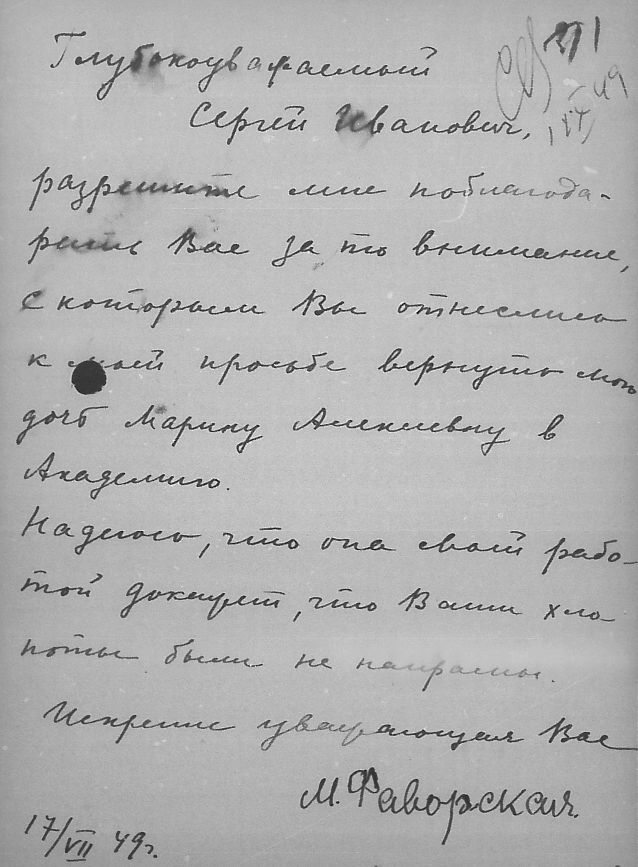 211
Глубокоуважаемый
Сергей Иванович,
разрешите мне поблагода-
рить Вас за то внимание,
с которым Вы отнеслись
к моей просьбе вернуть мою
дочь Марину Алексеевну в
Академию.
Надеюсь, что она своей рабо-
той докажет, что Ваши хло
поты были не напрасны.
Искренне уважающая Вас
М. Фаворская.
17/VII 49г.